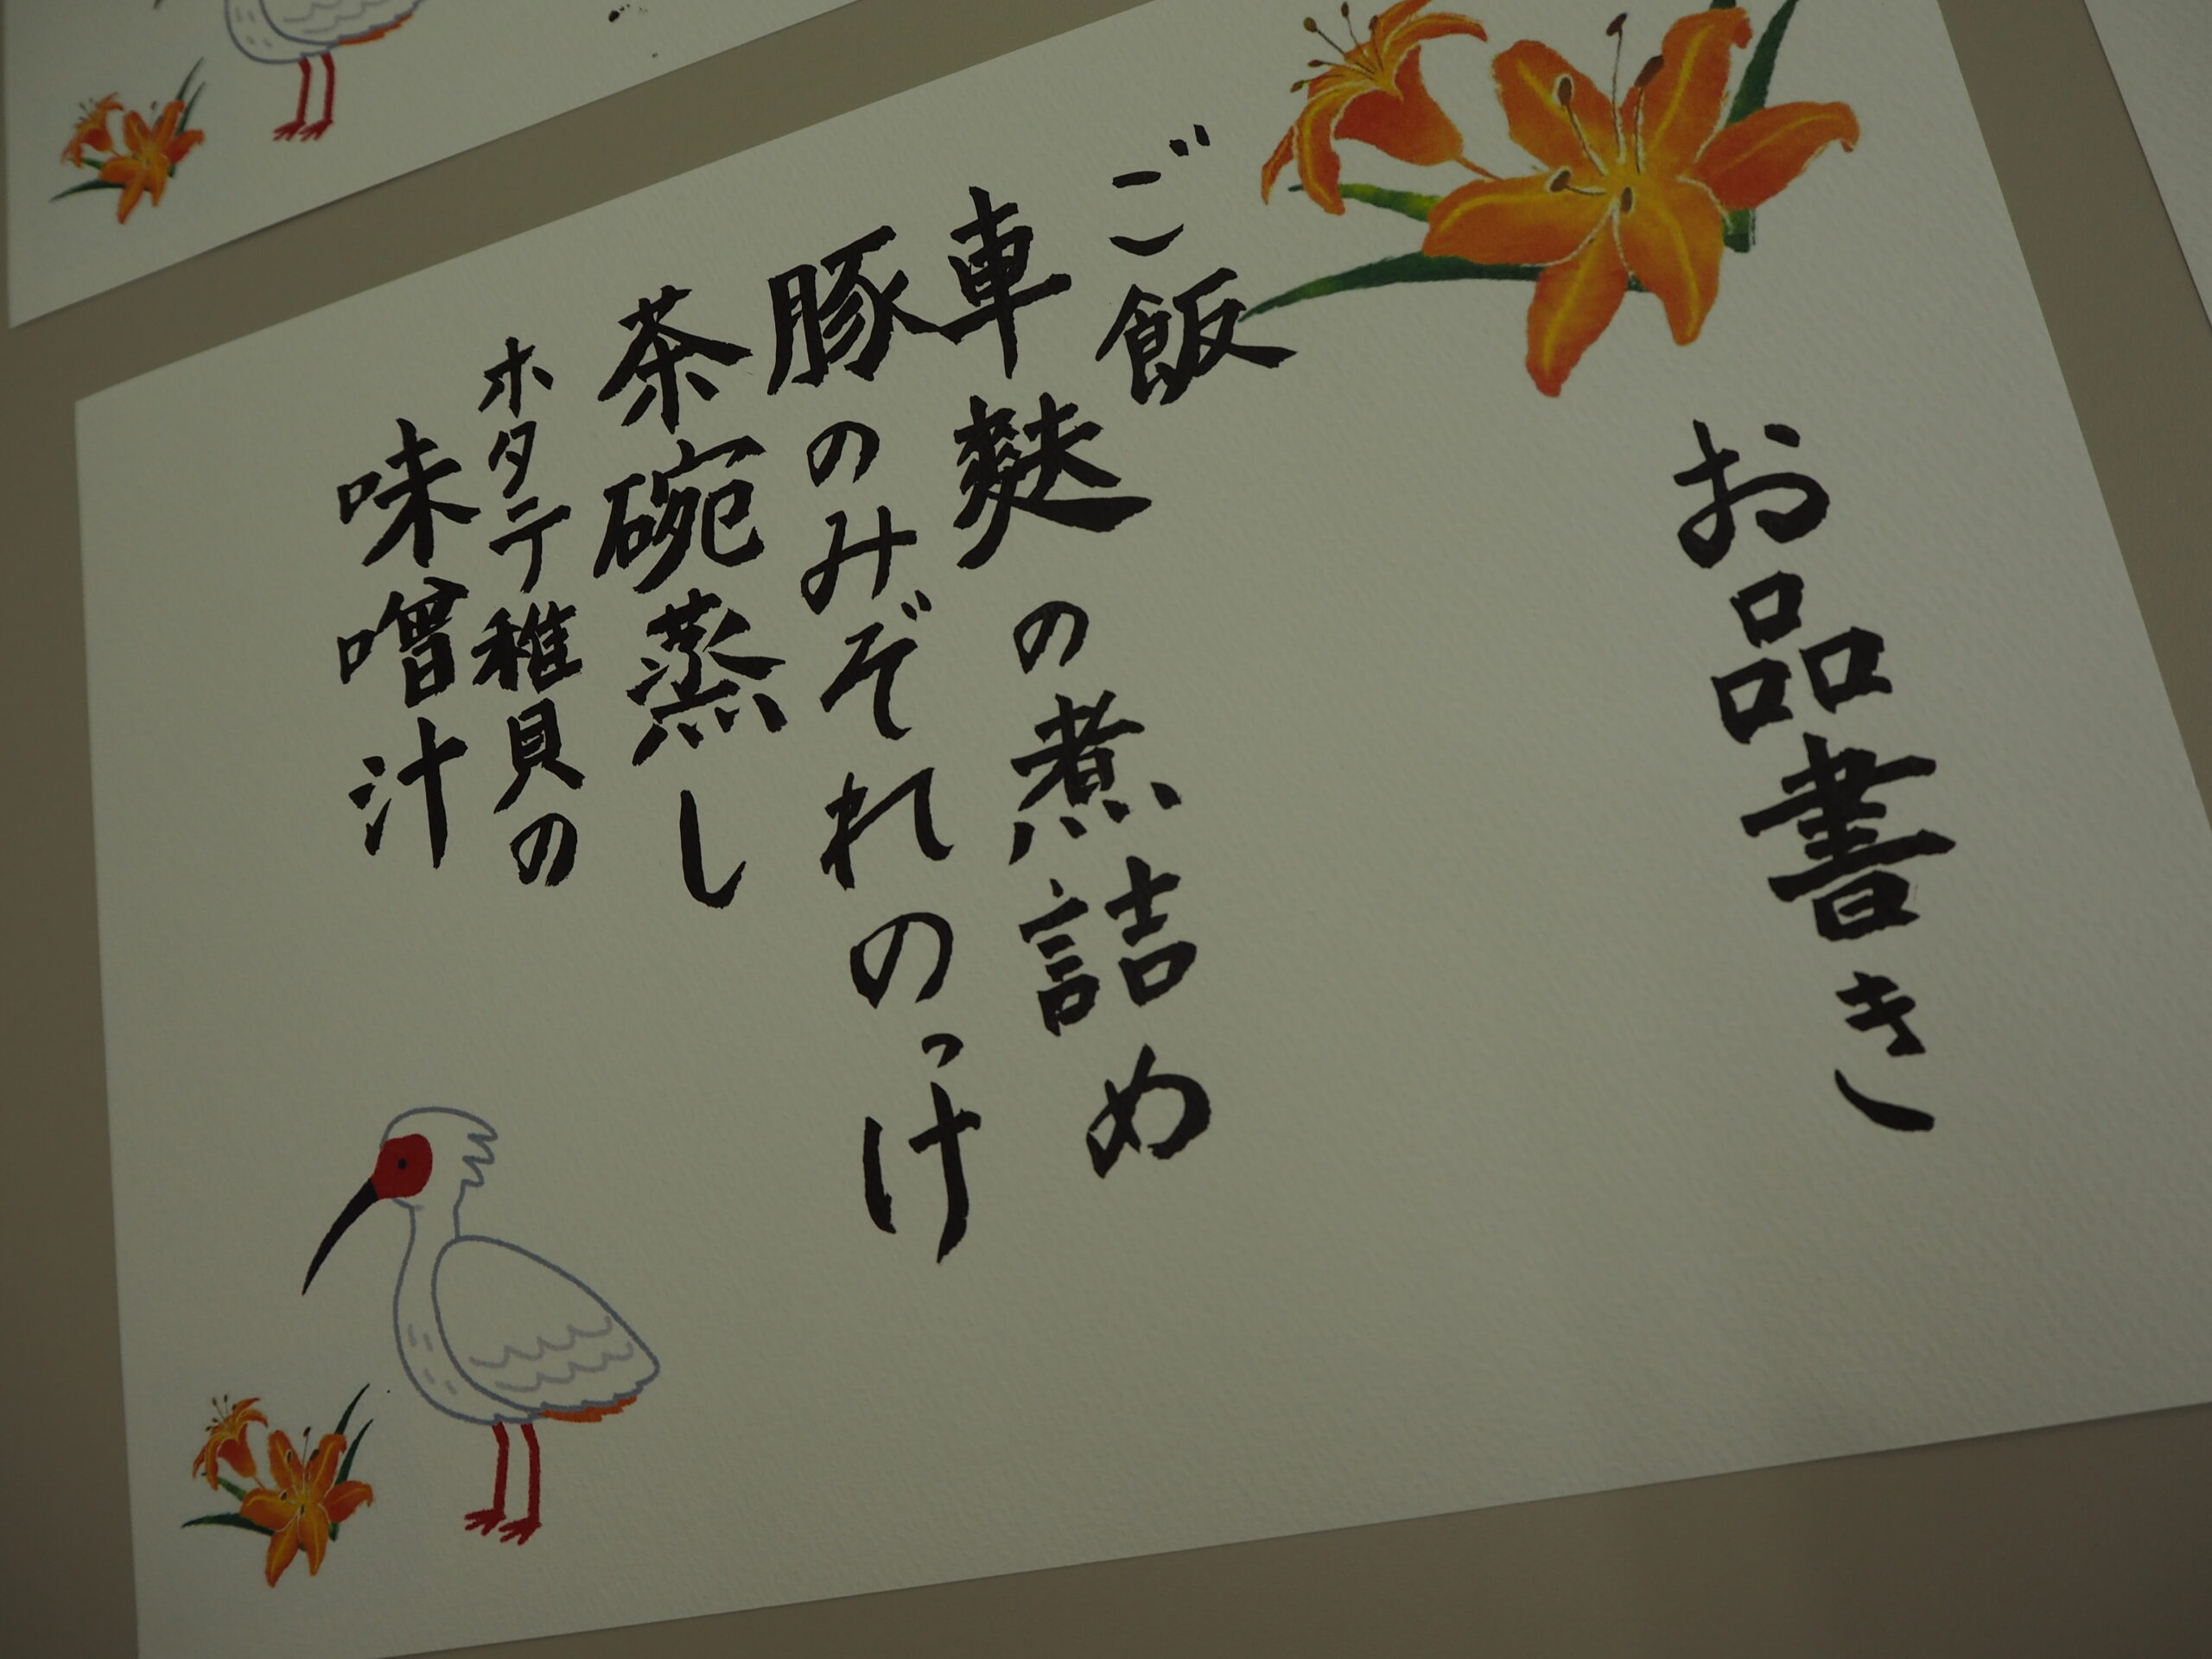 お品書き
ご飯
車麩の煮詰め
豚のみぞれのっけ
茶碗蒸し
ホタテ稚貝の
味噌汁